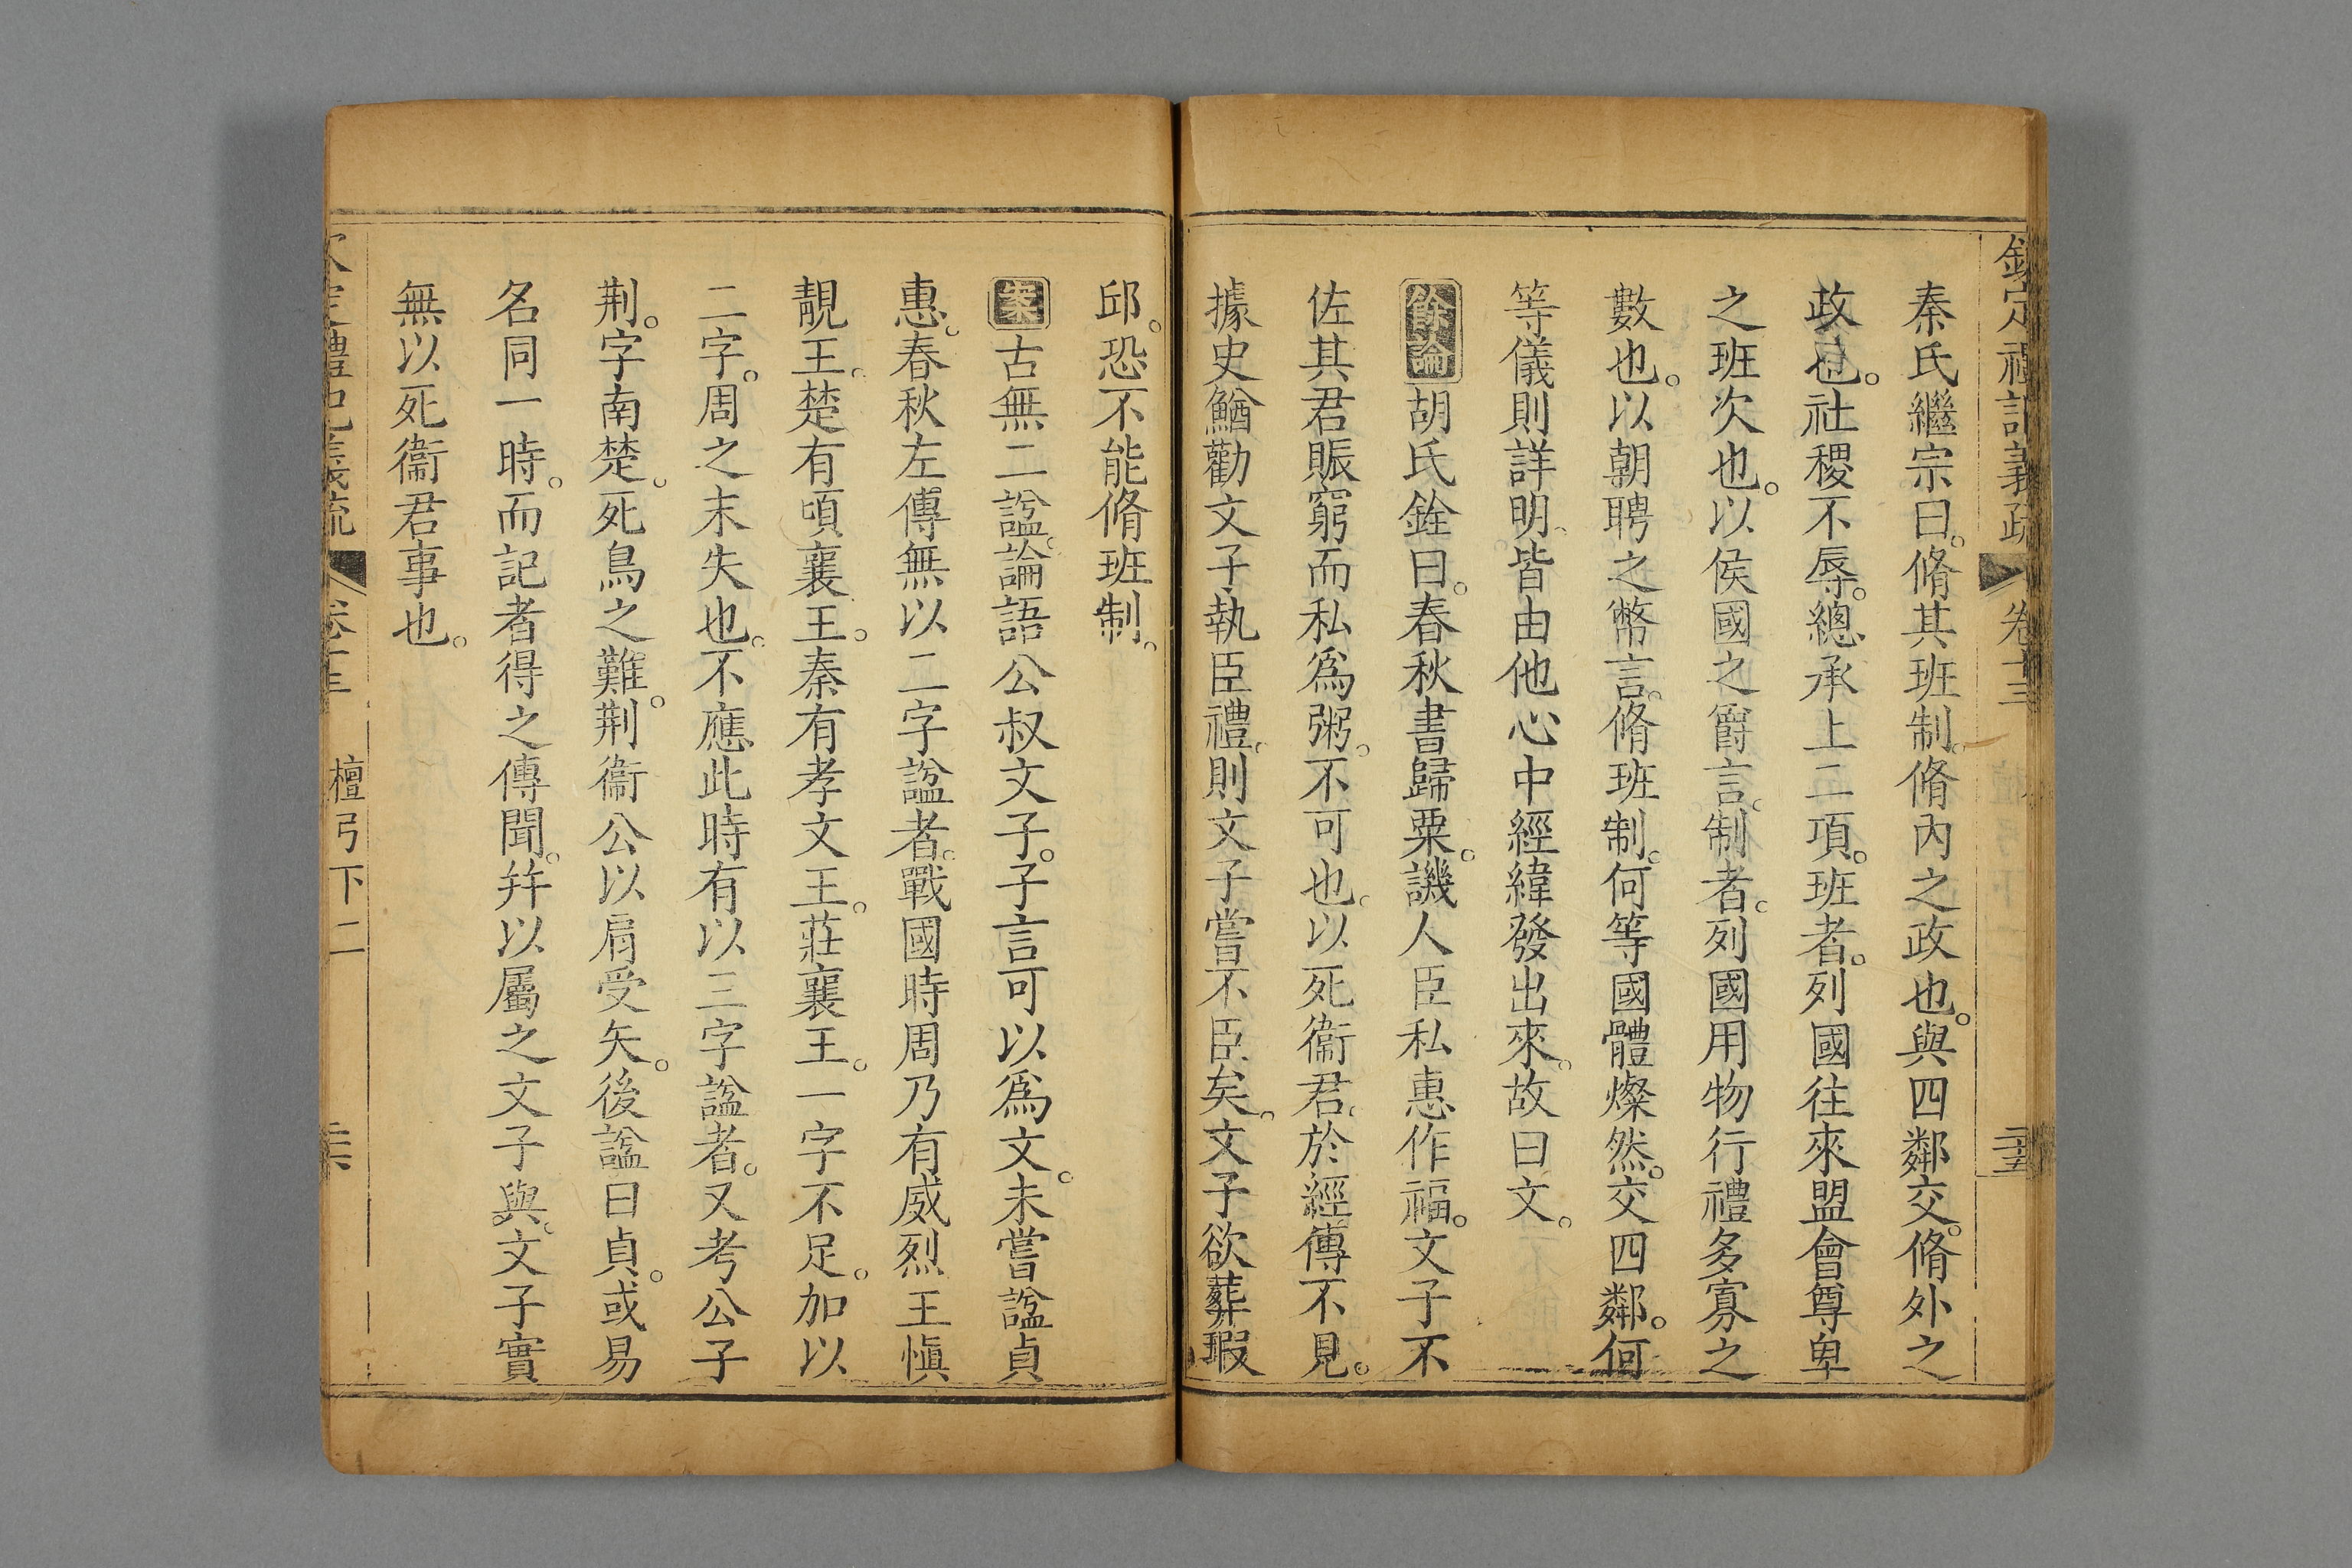 欽定禮記義疏 卷十三 二十五
秦氏繼宗曰。脩其班制。脩內之政也。與四鄰交。脩外之
政也。社稷不辱。總承上二項。班者。列國往來盟會尊卑
之班次也。以侯國之爵言。制者。列國用物行禮多寡之
數也。以朝聘之幣言。脩班制。何等國體燦然。交四鄰。何
等儀則詳明。皆由他心中經緯發出來。故曰文。
餘論胡氏銓曰。春秋書歸粟。譏人臣私惠作福。文子不
佐其君賑窮而私爲粥。不可也。以死衞君。於經傳不見。
據史鰌勸文子執臣禮。則文子嘗不臣矣。文子欲葬瑕
邱。恐不能脩班制。
案古無二諡。論語公叔文子。子言可以爲文。未嘗諡貞
惠。春秋左傳無以二字諡者。戰國時周乃有威烈王愼
靚王。楚有頃襄王。秦有孝文王。莊襄王。一字不足。加以
二字。周之末失也。不應此時有以三字諡者。又考公子
荆。字南楚。死鳥之難。荆衞公以肩受矢。後諡曰貞。或易
名同一時。而記者得之傳聞。幷以屬之文子與。文子實
無以死衞君事也。
欽定禮記義疏 卷十三 檀弓下二 二十六